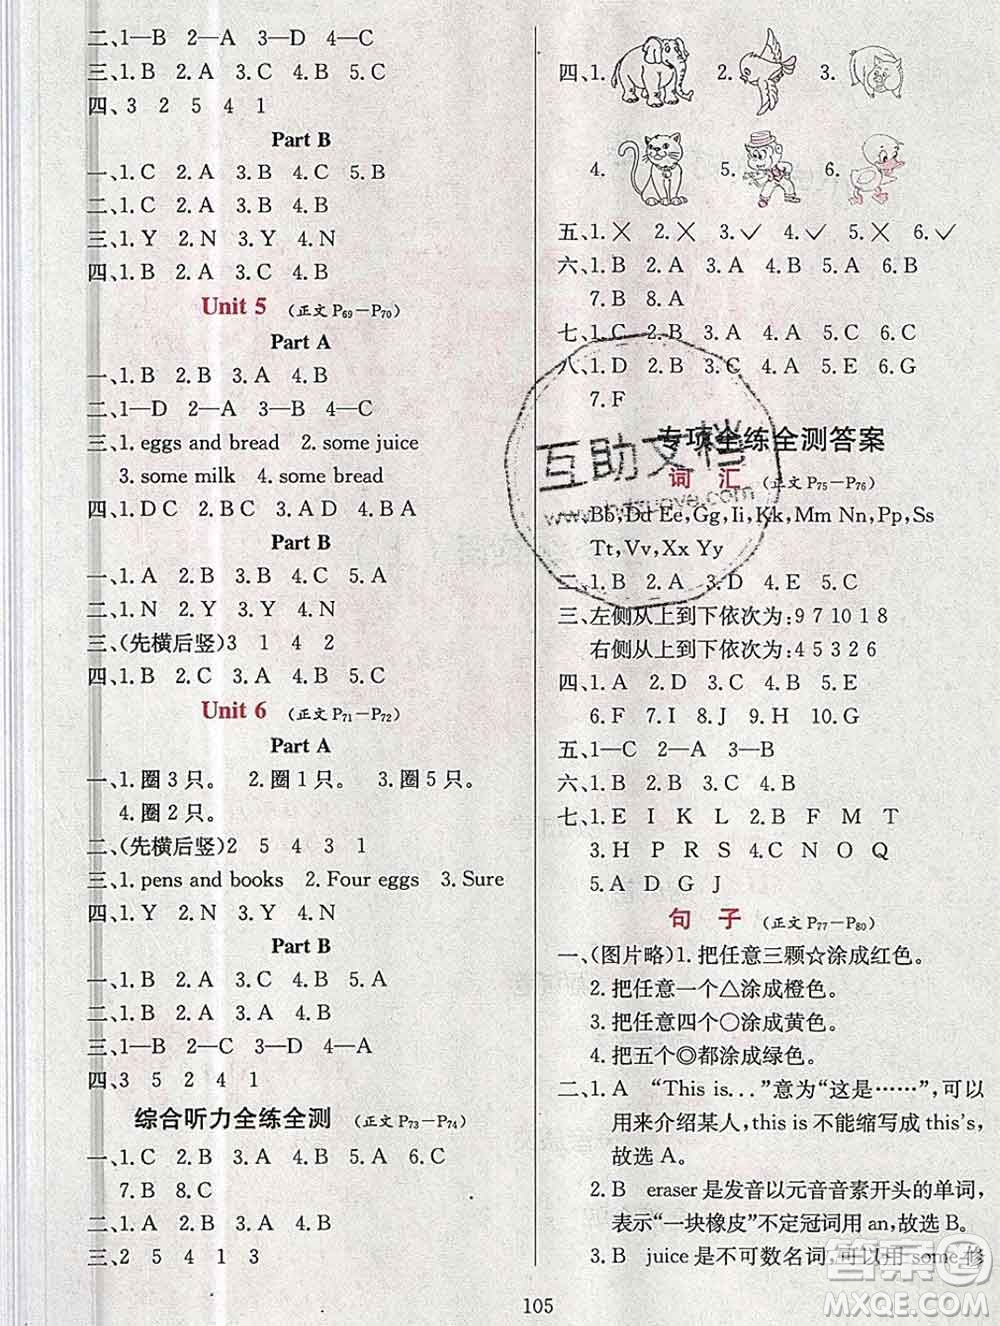 二、1—B 2—A 3—D 4—C
三、1.B 2.A 3.B 4.A 5.C
四、3 2 5 4 1
Part B
一、1.C 2.A 3.B 4.C 5.B
二、1.C 2.A 3.B 4.B
三、1.Y 2.N 3.Y 4.N
四、1.B 2.A 3.C 4.B
Unit 5 (正文 P69—P70)
Part A
一、1.B 2.B 3.A 4.B
二、1—D 2—A 3—B 4—C
三、1. eggs and bread 2. some juice
3. some milk 4. some bread
四、1.D C 2.B C 3.A D 4.B A
Part B
一、1.A 2.B 3.B 4.C 5.A
二、1.N 2.Y 3.Y 4.N
三、(先横后竖)3 1 4 2
四、1.B 2.C 3.A 4.B 5.C
Unit 6 (正文 P71—P72)
Part A
一、1. 圈 3 只。 2. 圈 1 只。 3. 圈 5 只。
4. 圈 2 只。
二、(先横后竖)2 5 4 3 1
三、1. pens and books 2. Four eggs 3. Sure
四、1.Y 2.N 3.Y 4.N
Part B
一、1.A 2.B 3.C 4.B 5.A
二、1.B 2.B 3.A 4.A
三、1—B 2—C 3—D 4—A
四、3 5 2 4 1
综合听力全练全测 (正文 P73—P74)
一、1.C 2.B 3.C 4.B 5.A 6.C
7.B 8.C
二、1.A 2.B 3.A 4.B
三、2 5 4 1 3
四、1. 2. 3.
4. 5. 6.
五、1.✕ 2.✕ 3.✓ 4.✓ 5.✕ 6.✓
六、1.B 2.A 3.B 4.A 5.B 6.B
7.B 8.A
七、1.C 2.B 3.A 4.A 5.C
八、1.D 2.B 3.C 4.A 5.E 6.G
7.F
专项全练全测答案
词 汇 (正文 P75—P76)
一、Bb,Dd Ee,Gg,Ii,Kk,Mm Nn,Pp,Ss
Tt,Vv,Xx Yy
二、1.B 2.A 3.D 4.E 5.C
三、左侧从上到下依次为:9 7 10 1 8
右侧从上到下依次为:4 5 3 2 6
四、1.A 2.D 3.C 4.B 5.E
6.F 7.I 8.J 9.H 10.G
五、1—C 2—A 3—B
六、1.B 2.B 3.A 4.B
七、1.E I K L 2.B F M T
3.P R S 4.C N O Q
5.A D G J
句 子 (正文 P77—P80)
一、(图片略)1. 把任意三颗☆涂成红色。
2. 把任意一个△涂成橙色。
3. 把任意四个○涂成黄色。
4. 把五个◎都涂成绿色。
二、1. A “This is. . .”意为“这是……”,可以
用来介绍某人,this is 不能缩写成 this's,
故选 A。
2. B eraser 是发音以元音音素开头的单词,
表示“一块橡皮”不定冠词用 an,故选 B。
3. B juice 是不可数名词,可以用 some 修
105
互助文档
答案
MXQE.COM